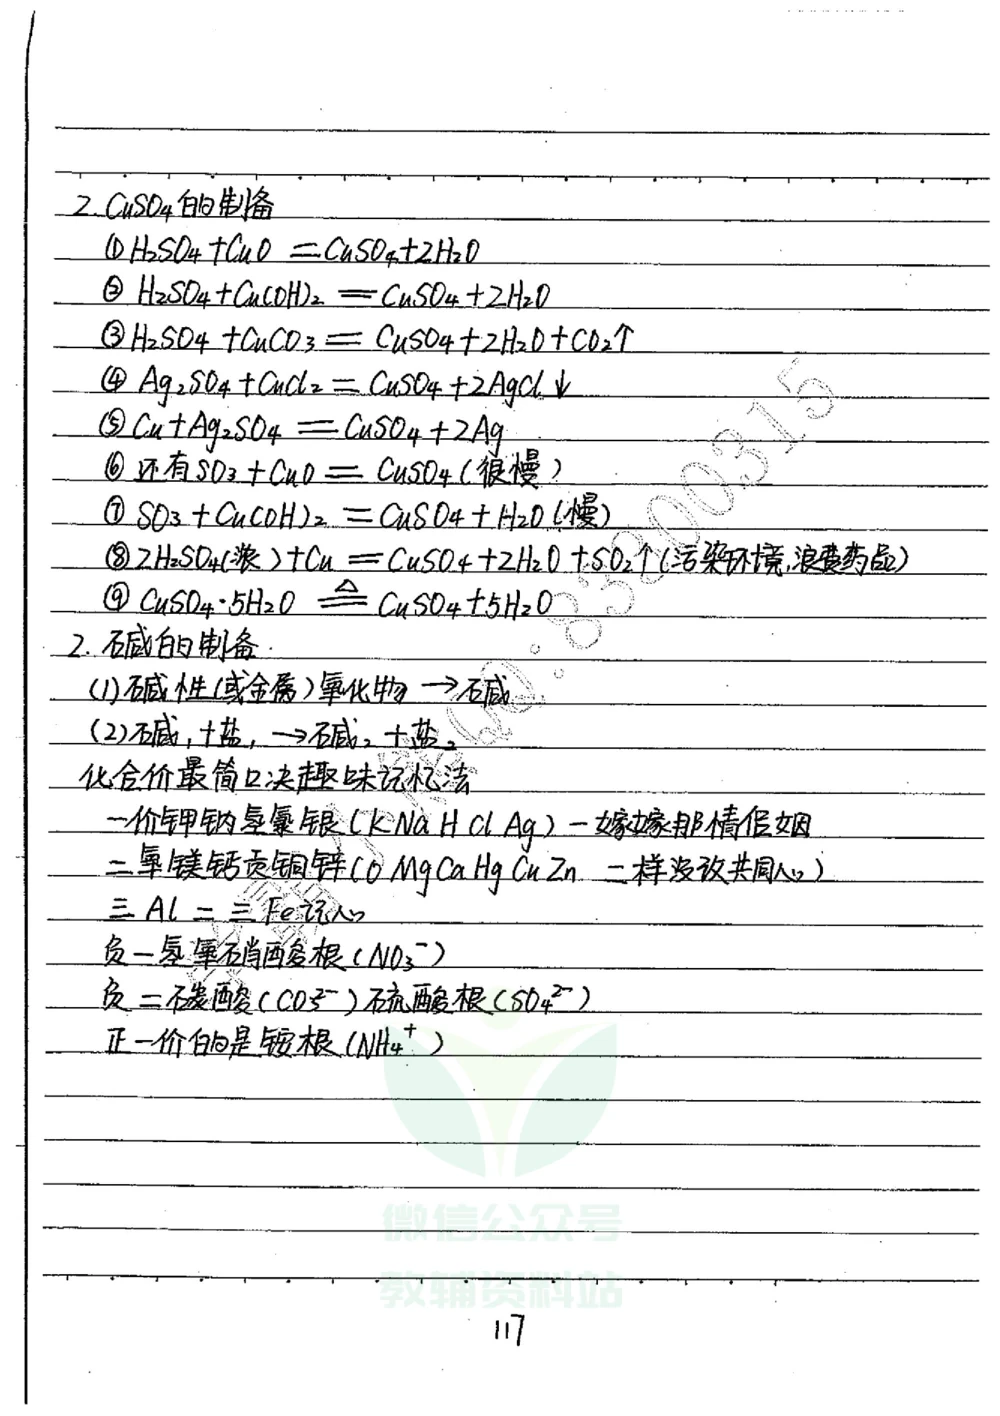 2. CuSO4的制备
① H2SO4+CuO ＝CuSO4+2H2O
② H2SO4+Cu(OH)2 ＝CuSO4+2H2O
③ H2SO4+CuCO3＝ CuSO4+2H2O+CO2↑
④ Ag2SO4+CuCl2＝CuSO4+2AgCl↓
⑤ Cu+Ag2SO4＝CuSO4+2Ag
⑥ 还有SO3+CuO＝ CuSO4(很慢)
⑦ SO3+Cu(OH)2 ＝CuSO4+H2O(慢)
⑧ 2H2SO4(浓)+Cu＝CuSO4+2H2O+SO2↑(污染环境,浪费药品)
⑨ CuSO4·5H2O ≜ CuSO4+5H2O
2. 碱的制备
(1)碱性(或金属)氧化物→碱
(2)碱1+盐1→碱2+盐2
化合价最简口决趣味记忆法
一价钾钠氢氯银(K Na H Cl Ag)一嫁嫁那情假姻
二氧镁钙贡铜锌(O Mg Ca Hg Cu Zn 二样没改共同心)
三Al 二三Fe记心
负一氢氧硝酸根(NO3-)
负二碳酸(CO3 2-)硫酸根(SO4 2-)
正一价的是铵根(NH4+)
117
QQ:83200315
微信公众号
教辅资料站